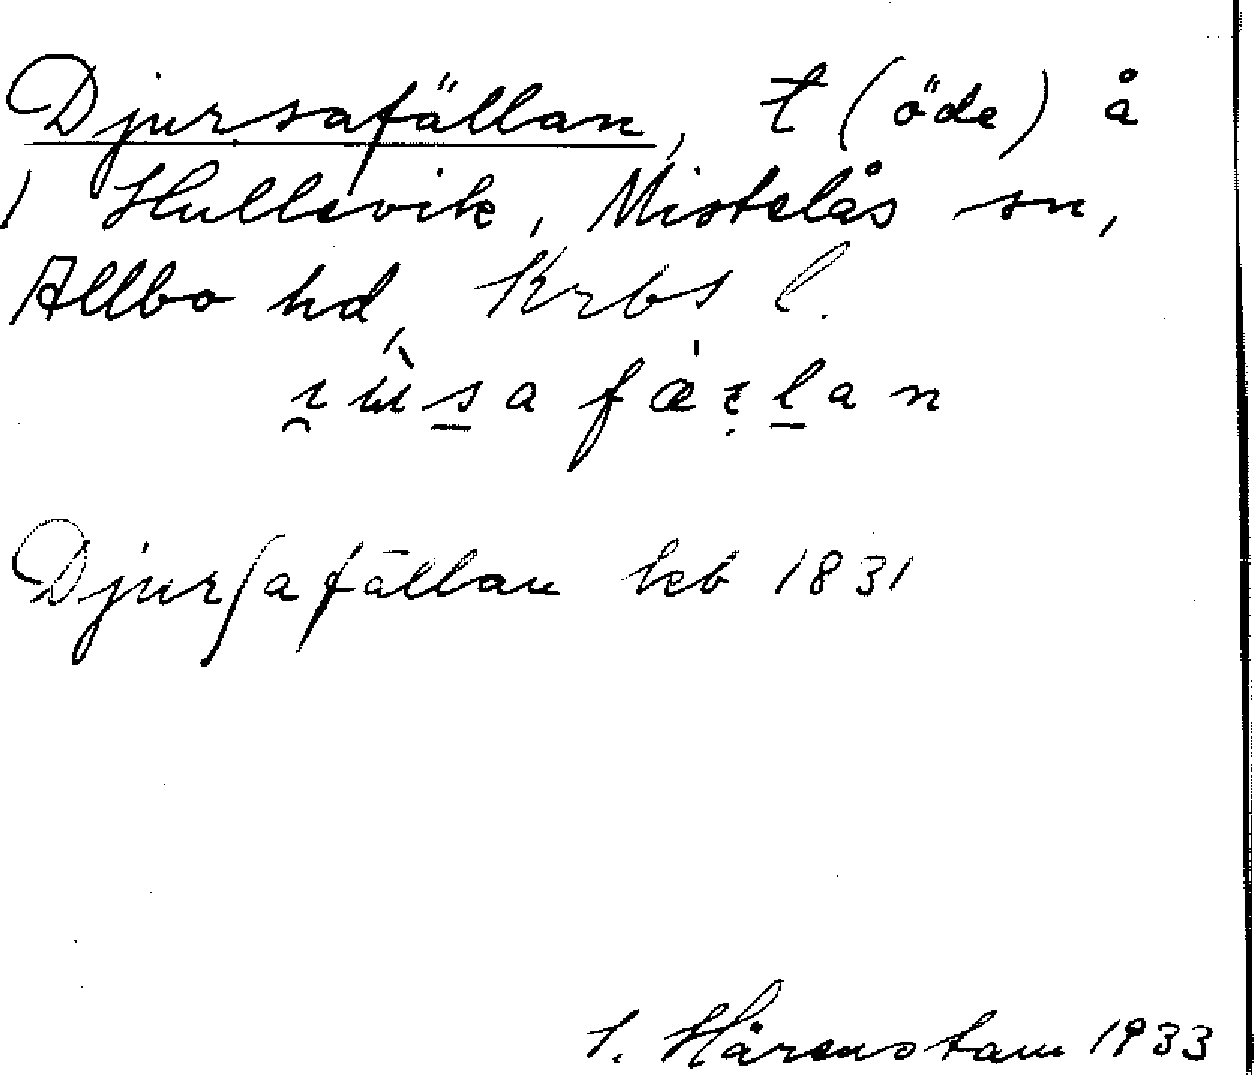 Djursafällan, t (öde) å
1 Hullevik, Mistelås sn,
Allbo hd, Krbs l.
Djurſafällan hcb 1831
S. Härenstam 1933